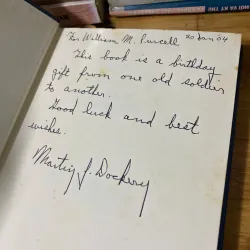 For William M. Purcell 20 Jan 04
This book is a birthday
gift from one old soldier
to another.
Good luck and best
wishes.
Martin J. Dockery